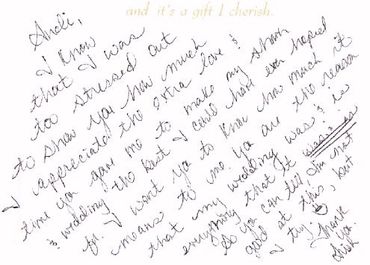 and it's a gift I cherish.
I know
that I was
too stressed out
to show you how much
I appreciated the extra love &
time you gave me to make my
& wedding the best I could have ever hoped
for. I want ya to know how much it
means to me. Ya are the reason
that my wedding was & is
everything that it
ya can tell I'm not
good at this, but
I try
ya.